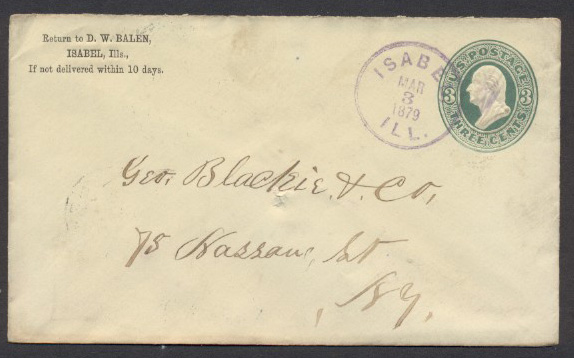 Return to D. W. BALEN,
ISABEL, Ills.,
If not delivered within 10 days.
ISABE
MAR
3
1879
ILL.
U.S. POSTAGE
3 3
THREE CENTS
Geo. Blackie & Co,
75 Nassau, St
N.Y.